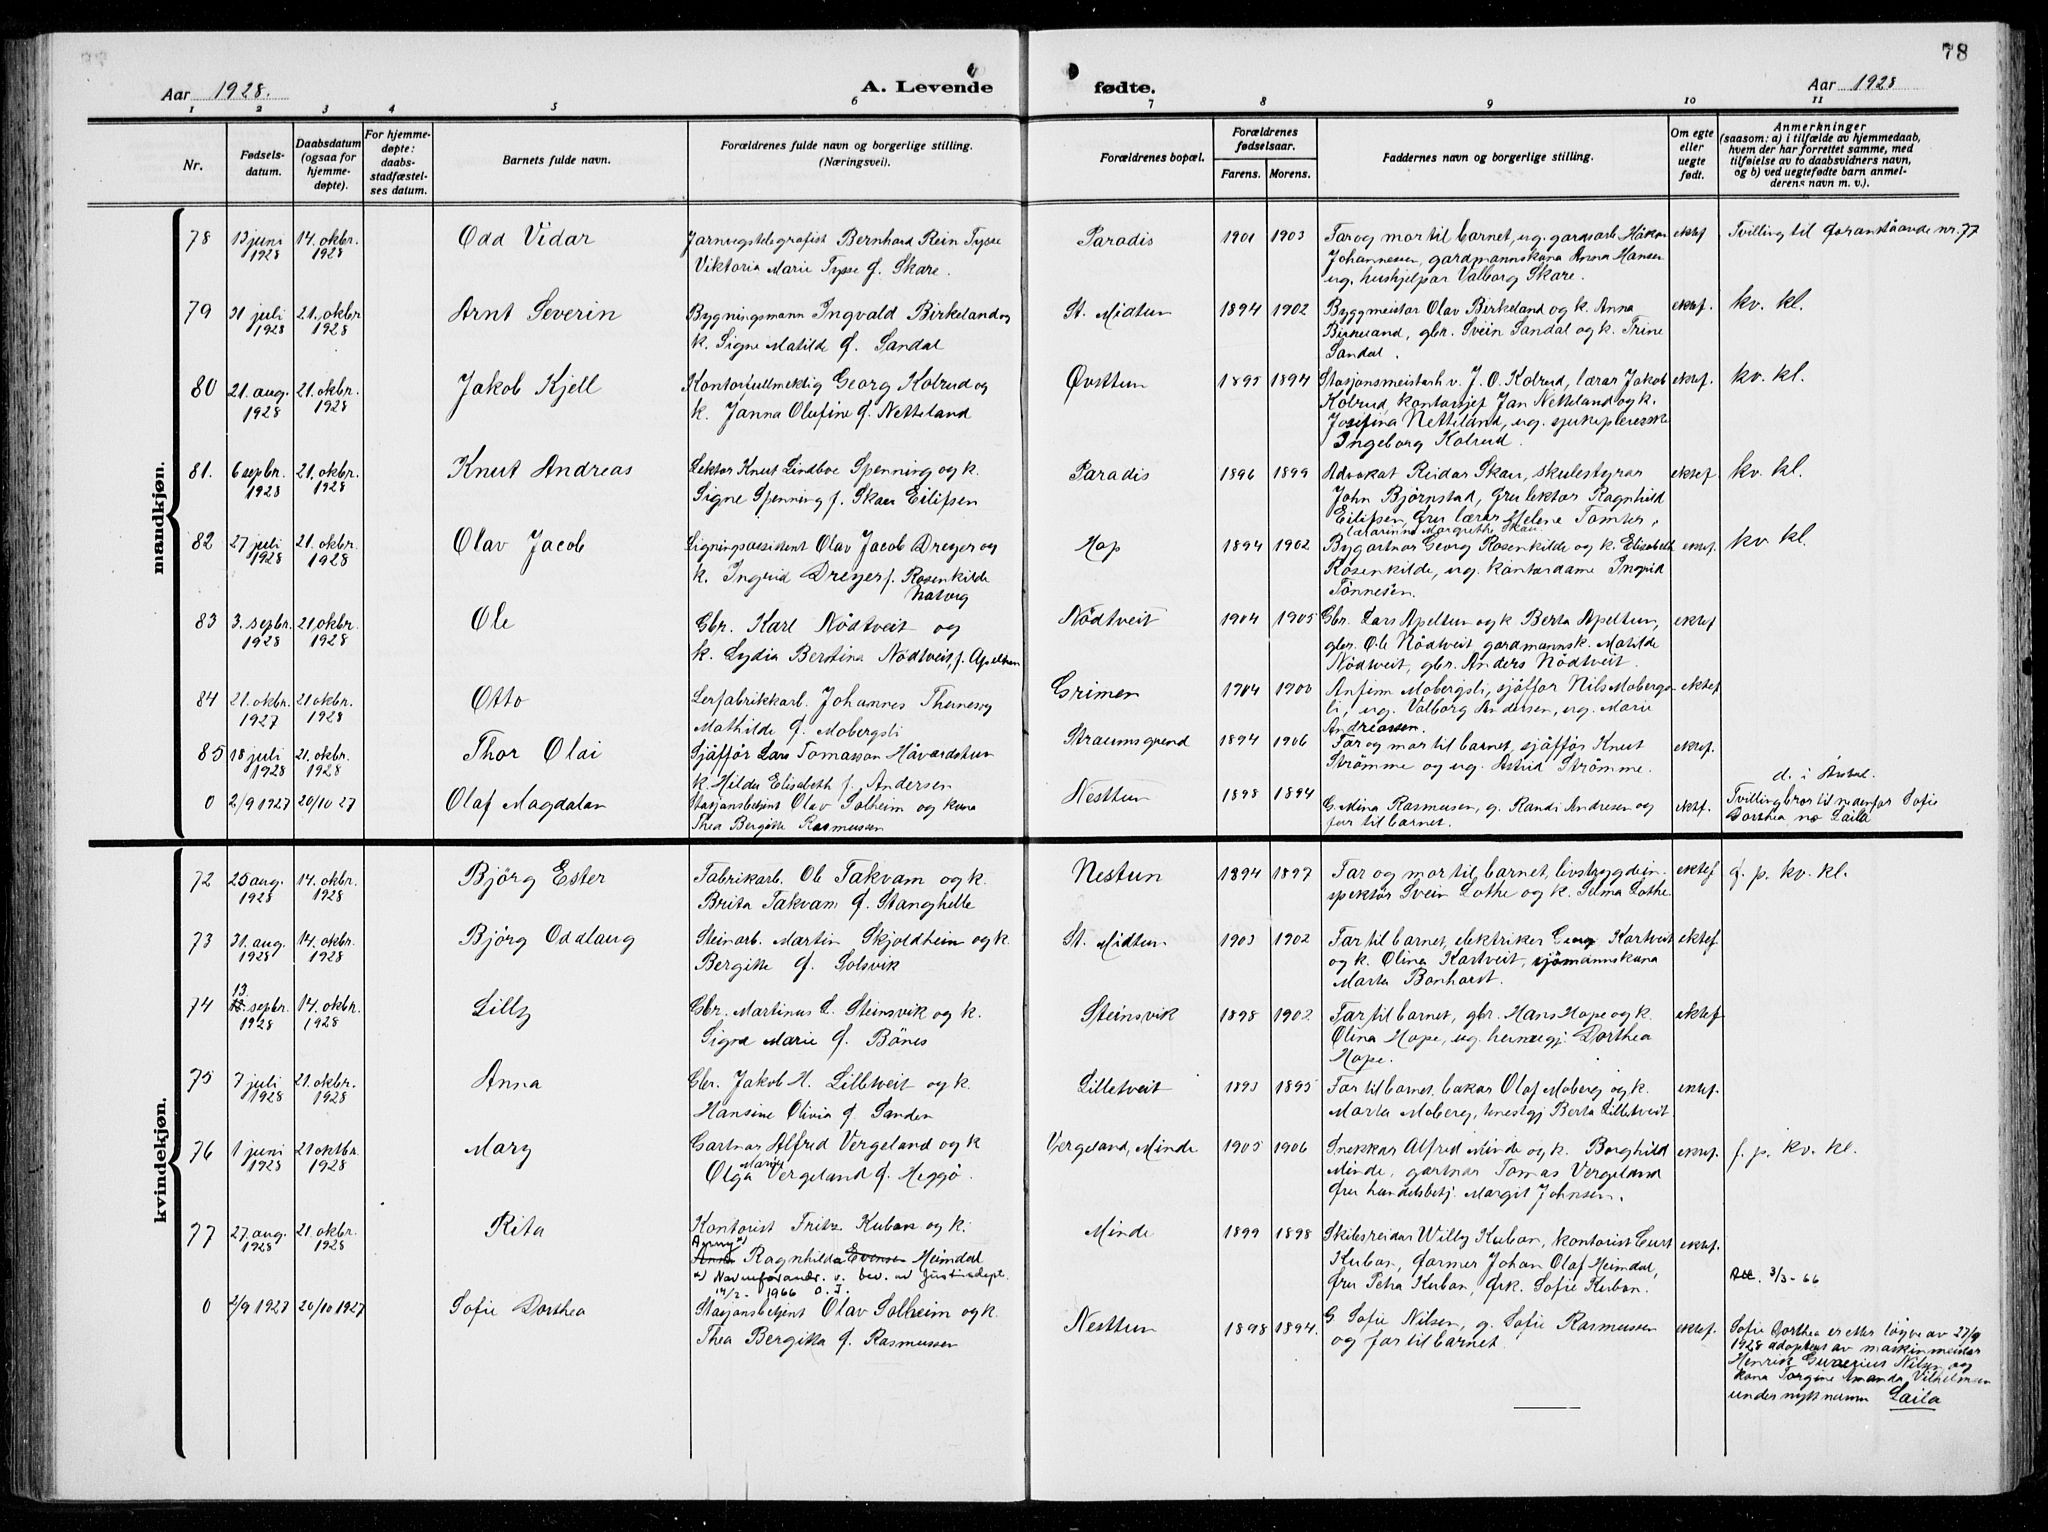 78
Aar 1928.
A. Levende fødte.
Aar 1928
1 2 3 4 5 6 7 8 9 10 11
Nr.
Fødsels-
datum.
Daabsdatum
(ogsaa for
hjemme-
døpte).
For hjemme-
døpte:
daabs-
stadfæstel-
ses datum.
Barnets fulde navn.
Forældrenes fulde navn og borgerlige stilling.
(Næringsvei).
Forældrenes bopæl.
Forældrenes
fødselsaar.
Farens. Morens.
Faddernes navn og borgerlige stilling.
Om egte
eller
uegte
født.
Anmerkninger
(saasom: a) i tilfælde av hjemmedaab,
hvem der har forrettet samme, med
tilføielse av to daabsvidners navn,
og b) ved uegtefødte barn anmel-
derens navn m. v.).
mandkjøn.
78 13 juni 14. okbr. Odd Vidar Jarnvegstelegrafist Bernhard Rein Tysse Paradis 1901 1903 Far og mor til barnet, ug. gardsarb. Håkon ektef Tvilling til foranståande nr. 77
1928 1928 Viktoria Marie Tysse f. Skare. Johannesen, gardmannskona Anna Hansen
ug. hushjelpar Valborg Skare.
79 31 juli 21. okbr Arnt Severin Bygningsmann Ingvald Birkeland og St. Midtun 1894 1902 Byggmeister Olav Birkeland og k. Anna ektef. kv. kl.
1928 1928 k. Signe Matilde f. Sandal Birkeland, gbr. Svein Sandal og k. Trine
Sandal.
80 21. aug. 21. okbr. Jakob Kjell Kontorfullmektig Georg Kolrud og Øvsttun 1895 1894 Stasjonsmeistarh v. J. O. Kolrud, lærar Jakob ektef. kv. kl.
1928 1928 k. Janna Olufine f. Netteland Kolrud, kontorsjef Jan Netteland og k.
Josefina Netteland, ug. sjukepleieske
Ingeborg Kolrud.
81. 6 sepbr. 21. okbr. Knut Andreas Lektor Knut Lindboe Spenning og k. Paradis 1896 1899 Advokat Reidar Skau, skulestyrar ektef. kv. kl.
1928 1928 Signe Spenning f. Skau Eilifsen John Bjørnstad, fru lektor Ragnhild
Eilifsen, fru lærar Helene Tomter,
lærarinne Margrethe Skau.
82 27 juli 21. okbr. Olav Jacob Ligningsassistent Olav Jacob Dreyer og Hop 1894 1902 Bygartnar Georg Rosenkilde og k. Elisabeth ektef. kv. kl.
1928 1928 k. Ingrid Dreyer f. Rosenkilde Rosenkilde, ug. kontordame Ingrid
Natvig Tønnesen.
83 3. sepbr. 21. okbr. Ole Gbr. Karl Nödtveit og Nödtveit 1904 1905 Gbr. Lars Apeltun og k. Berta Apeltun, ektef
1928 1928 k. Lydia Berstina Nödtveit, f. Apeltun gbr. Ole Nödtveit gardmannsk. Matilde
Nödtveit, gbr. Anders Nödtveit.
84 21. okbr. 21 okbr. Otto Lerfabrikkarb. Johannes Thernes og Grimen 1904 1900 Anfinn Mobergsli, sjåffør Nils Mobergs- ektef
1927 1928 Mathilde f. Mobergsli li, ug. Valborg Andersen, ug. Marie
Andreassen.
85 18 juli 21. okbr. Thor Olai Sjåffør Lars Tomasson Håvardstun Straumsgrend 1894 1906 Far og mor til barnet, sjåffør Knut ektef.
1928 1928 k. Hilda Elisabeth f. Andersen Strømme og ug. Astrid Strømme.
0 2/9 1927 20/10 27 Olaf Magdalon Stasjonsbetjent Olav Solheim og kona Nesttun 1898 1894 G. Mina Rasmusen, g. Randi Andresen og ektf. Tvillingbror til nedenfor Sofie
Thea Bergitte Rasmussen far til barnet. Dorthea, no Laila
kvindekjøn.
72 25 aug. 14. okbr. Bjørg Ester Fabrikarb. Ole Takvam og k. Nestun 1894 1897 Far og mor til barnet, livstrygdein- ektef f. p. kv. kl.
1928 1928 Brita Takvam f. Stanghelle spektør Svein Lothe og k. Selma Lothe
73 31. aug. 14. okbr. Bjørg Oddlaug Steinarb. Martin Skjoldheim og k. St. Midtun 1903 1902 Far til barnet, elektriker Georg Kartveit ektef
1928 1928 Bergitte f. Solsvik og k. Olina Kartveit, sjömannskona
Marta Bonhorst.
13.
74 sepbr. 14. okbr. Lilly Gbr. Martinus L. Steinsvik og k. Steinsvik 1898 1902 Far til barnet, gbr. Hans Hope og k. ektef
1928 1928 Signe Marie f. Bönes Olina Hope, ug. heimegj. Dorthea
Hope.
75 7 juli 21. okbr. Anna Gbr. Jakob H. Lilletveit og k. Lilletveit 1893 1895 Far til barnet, bakar Olaf Moberg og k. ektef.
1928 1928 Hansine Olivia f. Sanden Marta Moberg, tenestgj Berta Lilletveit
76 1 juni 21 oktbr. Mary Gartnar Alfred Vergeland og k Vergeland, Minde 1905 1906 Snekkar Alfred Minde og k. Borghild ektef. f. p. kv. kl.
1928 1928 Olga Mary Vergeland f. Heggö. Minde, gartnar Tomas Vergeland
fru handelsbetj. Margit Johnsen.
77 27. aug. 21. okbr. Rita Kontorist Fritz Kuban og k. Minde 1899 1898 Skibsreidar Willy Kuban, kontorist Curt ektef.
1928 1928 Ragnhilda Evensen Heimdal Kuban, farmer Johan Olaf Heimdal,
x) Navneforandr. v. bev. av Justisdept. fru Petra Kuban, frk. Sofie Kuban. 3/3-66
14/2 - 1966 O. J.
0 2/9 1927 20/10 1927 Sofie Dorthea Stasjonsbetjent Olav Solheim og k. Nesttun 1898 1894. G Sofie Nilsen, g. Sofie Rasmussen ektef. Sofie Dorthea er etter løyve av 27/9
Thea Bergitta f. Rasmussen og far til barnet. 1928 adoptert av maskinmeister
Henrik Nilsen og
kona Torgine Amanda Vilhelmsen
under nytt namn Laila